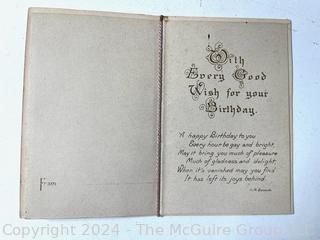 With
Every Good
Wish for your
Birthday.
A happy Birthday to you
Every hour be gay and bright,
May it bring you much of pleasure
Much of gladness and delight,
When it's vanished may you find
It has left its joys behind.
From
Copyright 2024 - The McGuire Group LLC